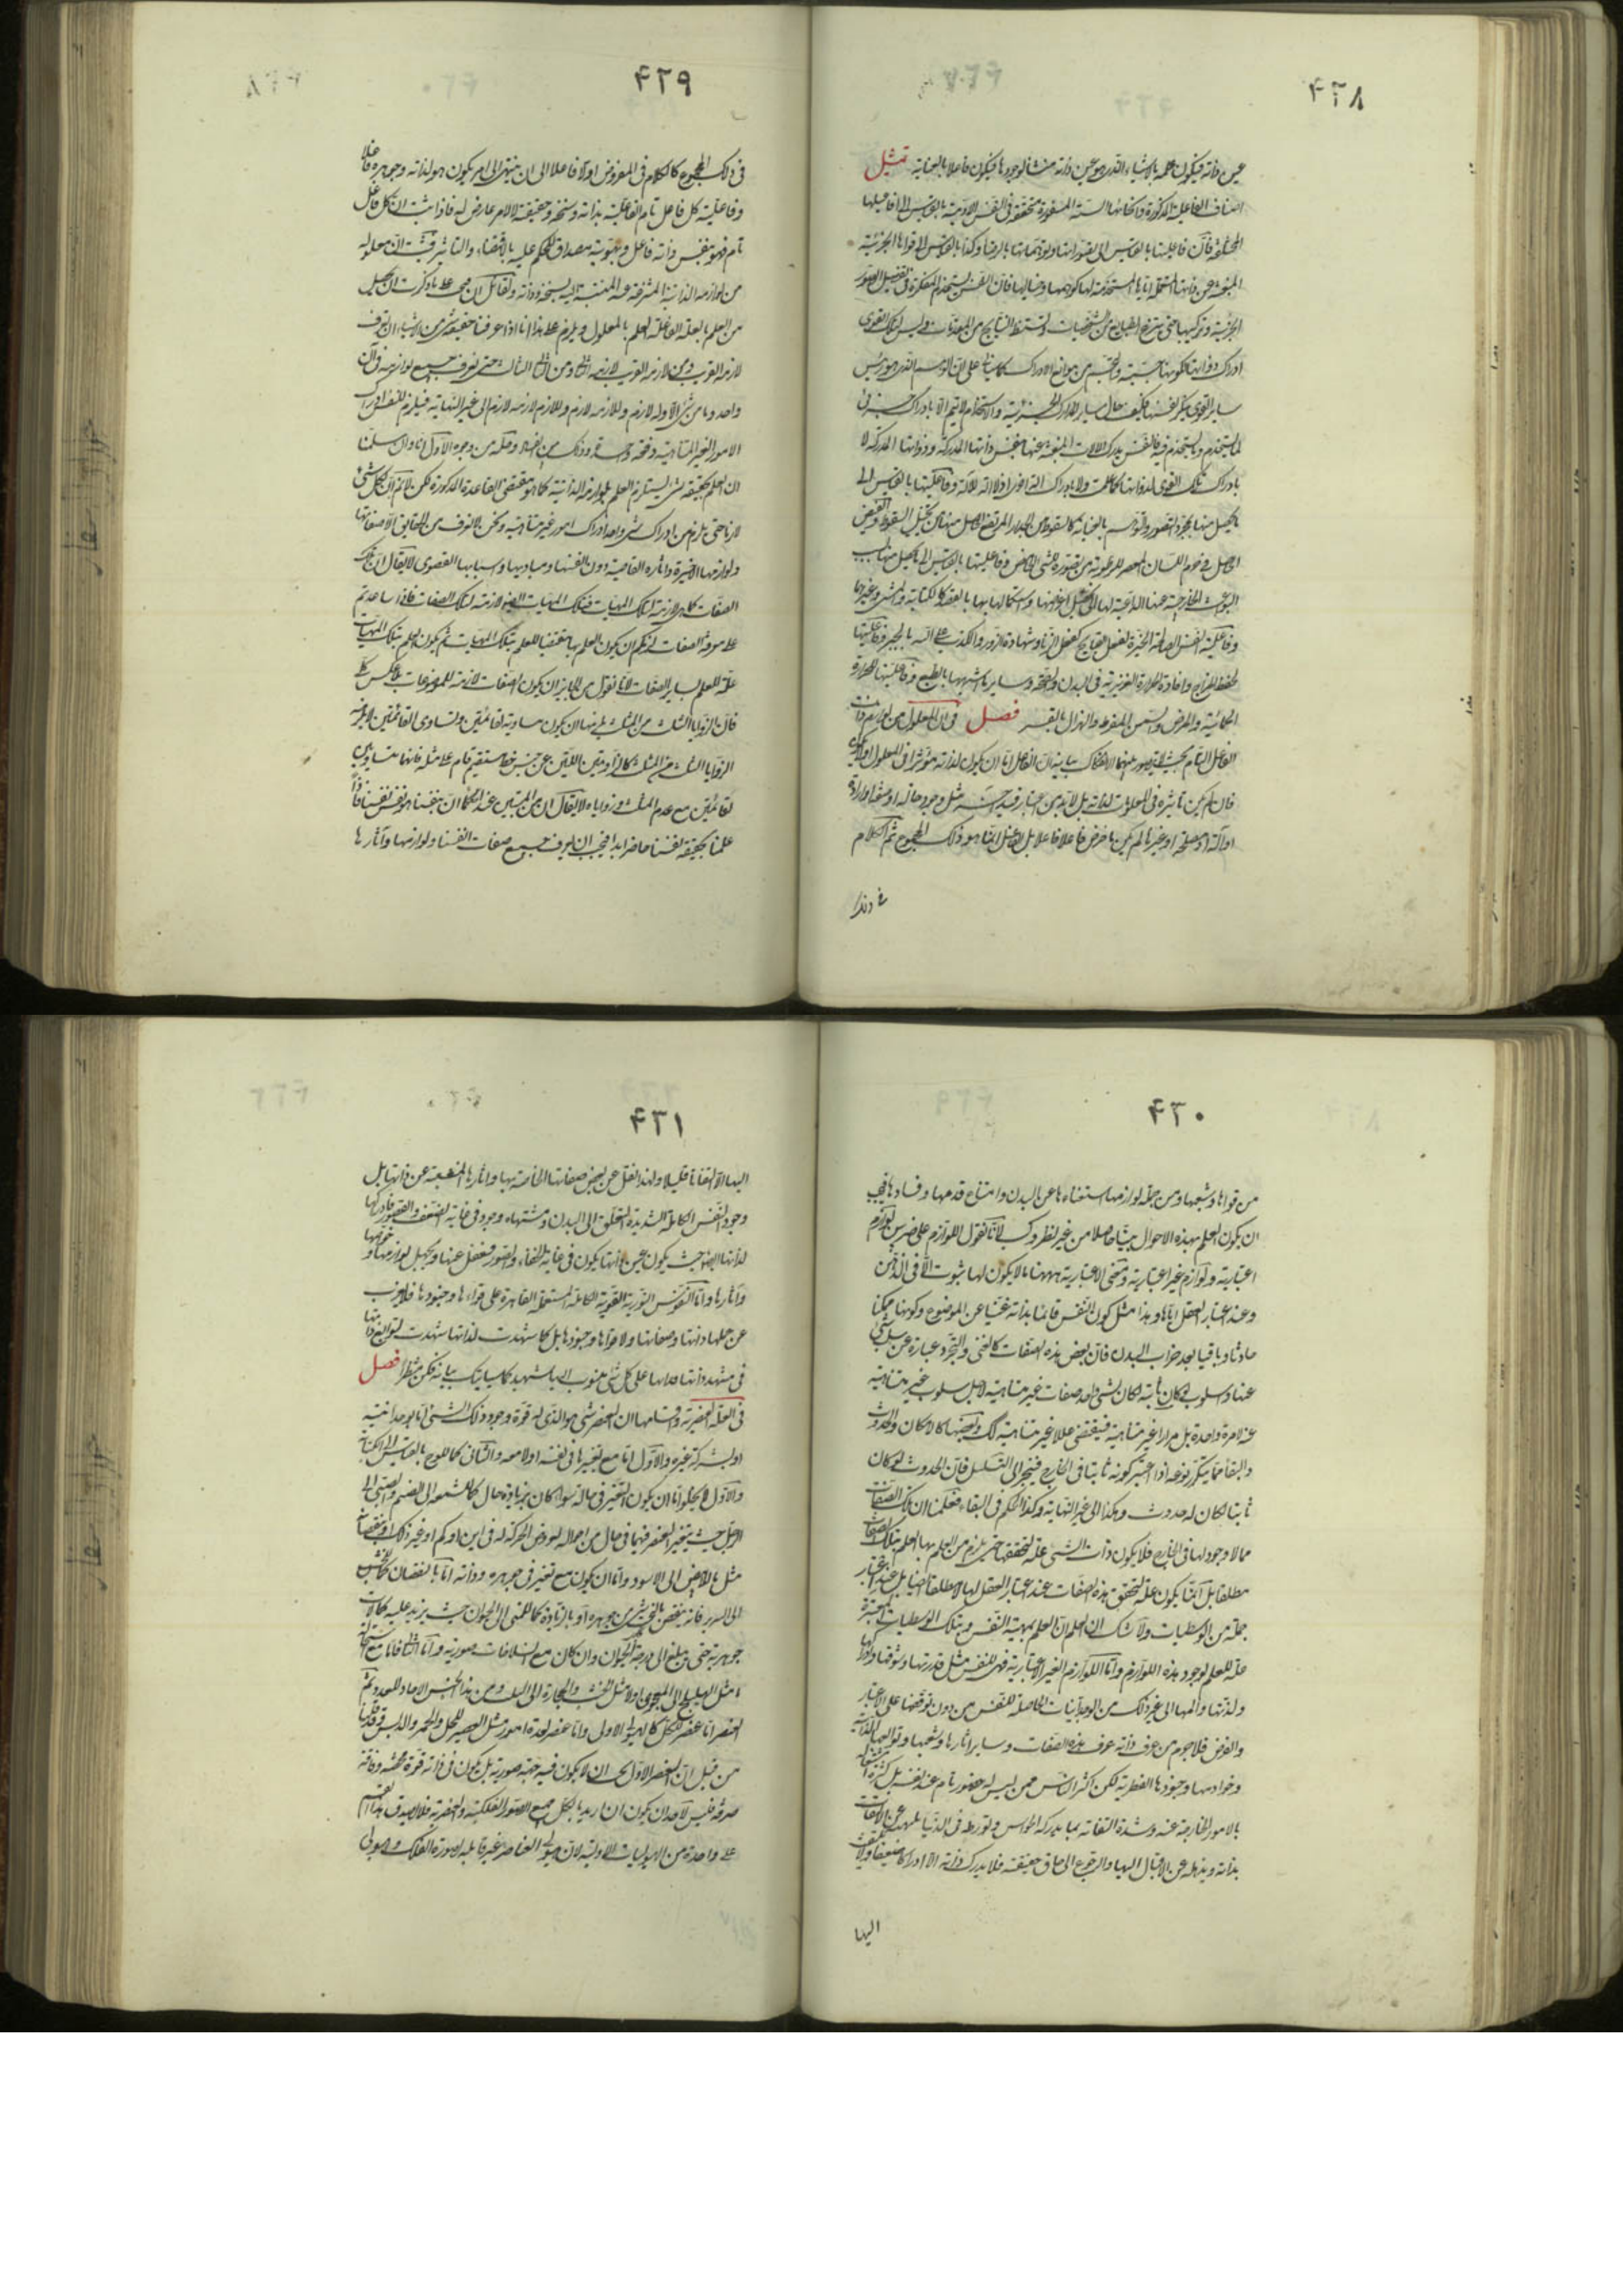 ٤٢٨
عين ذاته فيكون علمه بالاشياء الذى هو عين ذاته منشأ لوجودها فيكون فاعلا بالعناية تمثيل
اصناف الفاعلية المذكورة وانحائها الستة المسفورة متحققة فى النفس الادمية بالقياس الى افاعيلها
المختلفة فان فاعليتها بالقياس الى تصوراتها وتوهماتها بالرضا وكذا بالقياس الى قواها الجزئية
المنبعثة عن ذاتها المستعملة اياها المستخدمة لها كوهمها وخيالها فان النفس يستخدم المفكرة فى تفصيل الصور
الجزئية وتركيبها حتى ينتزع الطبايع من الشخصيات ويستنبط النتايج من المقدمات وليس لتلك القوى
ادراك ذواتها لكونها جسمية والتجسم من موانع الادراك كما سياتى على ان الوهم الذى هو رئيس
ساير القوى ينكر نفسها فكيف حال ساير المدارك الجزئية والاستخدام لا يتم الا بادراك جزئى
لما يستخدم وما يستخدم فيه فالنفس يدرك الالات المنبعثة عنها بنفس ذاتها المدركة وذواتها المدركة لا
بادراك تلك القوى لذواتها كما علمت ولا بادراك آلة اخرى اذ لا آلة للآلة وفاعليتها بالقياس الى
ما يحصل منها بمجرد التصور والتوهم بالعناية كالسقوط من الجدار المرتفع الحاصل منها من تخيل السقوط والقبض
الحاصل فى جرم اللسان المعصر للرطوبة من تصوره للشىء الحامض وفاعليتها بالقياس الى ما يحصل منها بسبب
البواعث الخارجية عنها الداعية لها الى تحصيل اغراضها واستكمالها بها بالقصد كالكتابة والمشى وغيرها
وفاعلية النفس الصالحة الخيرة لفعل القبايح كفعل الزنا وشهادة الزور والكذب على الله بالجبر وفاعليتها
لحفظ المزاج وافادة الحرارة الغريزية فى البدن والصحة وساير ما اشبهها بالطبع وفاعليتها للحرارة
الحمائية والمرض والسمن المفرط والهزال بالقسر فصل فى ان المعلول من لوازم ذات
الفاعل التام بحيث لا يتصور بينهما الانفكاك بيانه ان الفاعل اما ان يكون لذاته مؤثرا فى المعلول او لا يكون
فان لم يكن تاثيره فى المعلول لذاته بل لا بد من اعتبار قيد اخر مثل وجود حالة او صفة او ارادة
او آلة او مصلحة او غيرها لم يكن ما فرض فاعلا فاعلا بل الفاعل انما هو ذلك المجموع ثم الكلام
٤٢٩
فى ذلك المجموع كالكلام فى المفروض اولا فاعلا الى ان ينتهى الى امر يكون هو لذاته وجوهره فاعلا
وفاعلية كل فاعل تام الفاعلية بذاته وسنخه وحقيقته لا لامر عارض له فاذا ثبت ان كل فاعل
تام فهو بنفس ذاته فاعل وبهويته مصداق للحكم عليه بالاقتضاء والتاثير فثبت ان معلوله
من لوازمه الذاتية المنتزعة عنه المنتسبة اليه بسنخه وذاته ولقائل ان يجيب على ما ذكرت ان يحصل
من العلم بالعلة الفاعلة العلم بالمعلول ويلزم على هذا انا اذا عرفنا حقيقة شىء من الاشياء ان نعرف
لازمه القريب ومن لازمه القريب لازمه الثانى ومن الثانى الثالث حتى نعرف جميع لوازمه فى آن
واحد وما من شىء الا وله لازم وللازمه لازم وللازم لازمه لازم الى غير النهاية فيلزم للنفس ادراك
الامور الغير المتناهية دفعة واحدة وذلك بين الفساد وحله من وجوه الاول انا وان سلمنا
ان العلم بحقيقة شىء يستلزم العلم بلوازمه الذاتية كما هو مقتضى القاعدة المذكورة لكن لا نم ان لكل شىء
لازما حتى يلزم من ادراك شىء واحد ادراك امور غير متناهية ونحن لا نعرف من الحقايق الا صفاتها
ولوازمها الاخيرة واثارها القاصية دون انفسها ومباديها واسبابها القصوى لا يقال ان تلك
الصفات كما هى لازمة لتلك المهيات فتلك المهيات ايضا لازمة لتلك الصفات فاذا ساعدتم
على معرفة الصفات لزمكم ان يكون العلم بها مقتضيا للعلم بتلك المهيات ثم يكون العلم بتلك المهيات
علة للعلم بساير الصفات لانا نقول من الجايز ان يكون الصفات لازمة للموضوعات بلا عكس كلى
فان الزوايا الثلث من المثلث يلزمها ان يكون مساوية لقائمتين وتساوى القائمتين لا يلزمه
الزوايا الثلث من المثلث كالزاويتين اللتين عن جنبتى خط مستقيم قام على مثله فانهما متساويتين
لقائمتين مع عدم المثلث وزواياه لا يقال ان من المبين عند الحكماء ان علمنا بانفسنا هو نفس نفسنا فاذا
علمنا بحقيقة نفسنا حاضر ابدا فيجب ان نعرف جميع صفات انفسنا ولوازمها وآثارها
فى ذلك
٤٣٠
من قواها وشعبها ومن جملة لوازمها استغناءها عن البدن وامتناع قدمها وفسادها فيجب
ان يكون العلم بهذه الاحوال بينا حاصلا من غير نظر وكسب لانا نقول اللوازم على ضربين لوازم
اعتبارية ولوازم غير اعتبارية ومعنى الاعتبارية ههنا ما لا يكون لها ثبوت الا فى الذهن
وعند اعتبار العقل اياها وهذا مثل كون النفس قائما بذاته غنيا عن الموضوع وكونها ممكنا
حادثا وباقيا بعد خراب البدن فان بعض هذه الصفات كالغنى والتجرد عبارة عن سلب شىء
عنها وسلوب لو كان ثابتة لكان لشىء واحد صفات غير متناهية لاجل سلوب غير متناهية
عنه لا مرة واحدة بل مرارا غير متناهية فيقتضى عللا غير متناهية كك وبعضها كالامكان والحدوث
والبقاء مما يتكرر نوعه اذا اعتبر كونه ثابتا فى الخارج فينجر الى التسلسل فان الحدوث لو كان
ثابتا لكان له حدوث وهكذا الى غير النهاية وكذا الحكم فى البقاء فعلمنا ان تلك الصفات
مما لا وجود لها فى الخارج فلا يكون ذات الشىء علة لتحققها حتى يلزم من العلم بها العلم بتلك الصفات
مطلقا بل انما يكون علة لتحقق هذه الصفات عند اعتبار العقل لها لا مطلقا ايضا بل عند اعتبار
جملة من الوسطيات ولا شك ان العلم ان العلم بمهية النفس وبتلك الوسطيات المعتبرة
علة للعلم بوجود هذه اللوازم واما اللوازم الغير الاعتبارية فهى للنفس مثل قدرتها وشوقها وادراكها
ولذتها والمها الى غير ذلك من الوجدانيات الحاصلة للنفس من دون توقفها على الاعتبار
والفرض فلا جرم من عرف ذاته عرف هذه الصفات وساير اثارها وشعبها وتوابعها الذاتية
وخوادمها وجنودها الفطرية لكن اكثر الناس ممن ليس له حضور تام عند نفسه بل كثرة اشتغاله
بالامور الخارجة عنه وشدة التفاته بما يدركه الحواس وتورطه فى الدنيا يلهيه عن الالتفات
بذاته ويذهله عن الاقبال اليها والرجوع الى حاق حقيقته فلا يدرك ذاته الا ادراكا ضعيفا ولا يلتفت
اليها
٤٣١
اليها الا التفاتا قليلا ولهذا يغفل عن بعض صفاتها الخاصة بها واثارها المنبعثة عن ذاتها بل
وجود النفس الكاملة الشديدة التعلق الى البدن ومشتهاه وجود فى غاية الضعف والقصور فادراكها
لذاتها ايضا حيث يكون عين ذاتها يكون فى غاية الخفاء والقصور فيغفل عنها ويجهل لوازمها وخواصها
وآثارها واما النفوس النورية القوية الكاملة المستعلية القاهرة على قواها وجنودها فلا يعزب
عن علمها ذاتها وصفاتها ولا قواها وجنودها بل كما شهدت لذاتها شهدت لتوابع ذاتها
فى مشهد ذاتها فانها على كل شىء منسوب اليها شهيد كما سياتيك بيانه فكن منتظرا فصل
فى العلة العنصرية واقسامها ان العنصر شىء هو الذى له قوة وجود ذلك الشىء اما بوحدانيته
او بشركة غيره والاول اما مع تغير ما فى نفسه اولا معه والثانى كما للوح بالقياس الى الكتابة
والاول لا يخلو اما ان يكون التغير فى حالة سواء كان بزيادة حال كما للشمعة الى الصنم وللصبى الى
الرجل حيث يتغير العنصر فيهما فى حال من احواله بعروض الحركة له فى اين او كم او غير ذلك او بنقصان
مثل ما للابيض الى الاسود واما ان يكون مع تغير فى جوهره وذاته اما بالنقصان كما للخشب
الى السرير فانه ينقص بالنحت شىء من جوهره او بالزيادة كما للمنى الى الحيوان حيث يزيد عليه كمالات
جوهرية حتى يبلغ الى درجة الحيوان وان كان مع انسلاخات صورية واما الثانى فاما مع استحالة
ما مثل الهليلج الى المعجون اولا مثل الخشب والحجارة الى البيت ومن هذا الجنس الاحاد للعدد ثم
العنصر اما عنصر للكل كالهيولى الاولى واما عنصر لعدة امور مثل العصير للخل والخمر والدبس وقد قلنا
من قبل ان العنصر الاول يجب ان لا يكون فيه جهة صورية بل يكون فى ذاته قوة محضة وفاقة
صرفة فليس لاحد ان يكون ان اريد بالكل جميع الصور الفلكية والعنصرية فلا يصدق هذا القسم
على واحدة من الهيوليات الاولية لان هيولى العناصر غير قابلة لصورة الفلك وهيولى